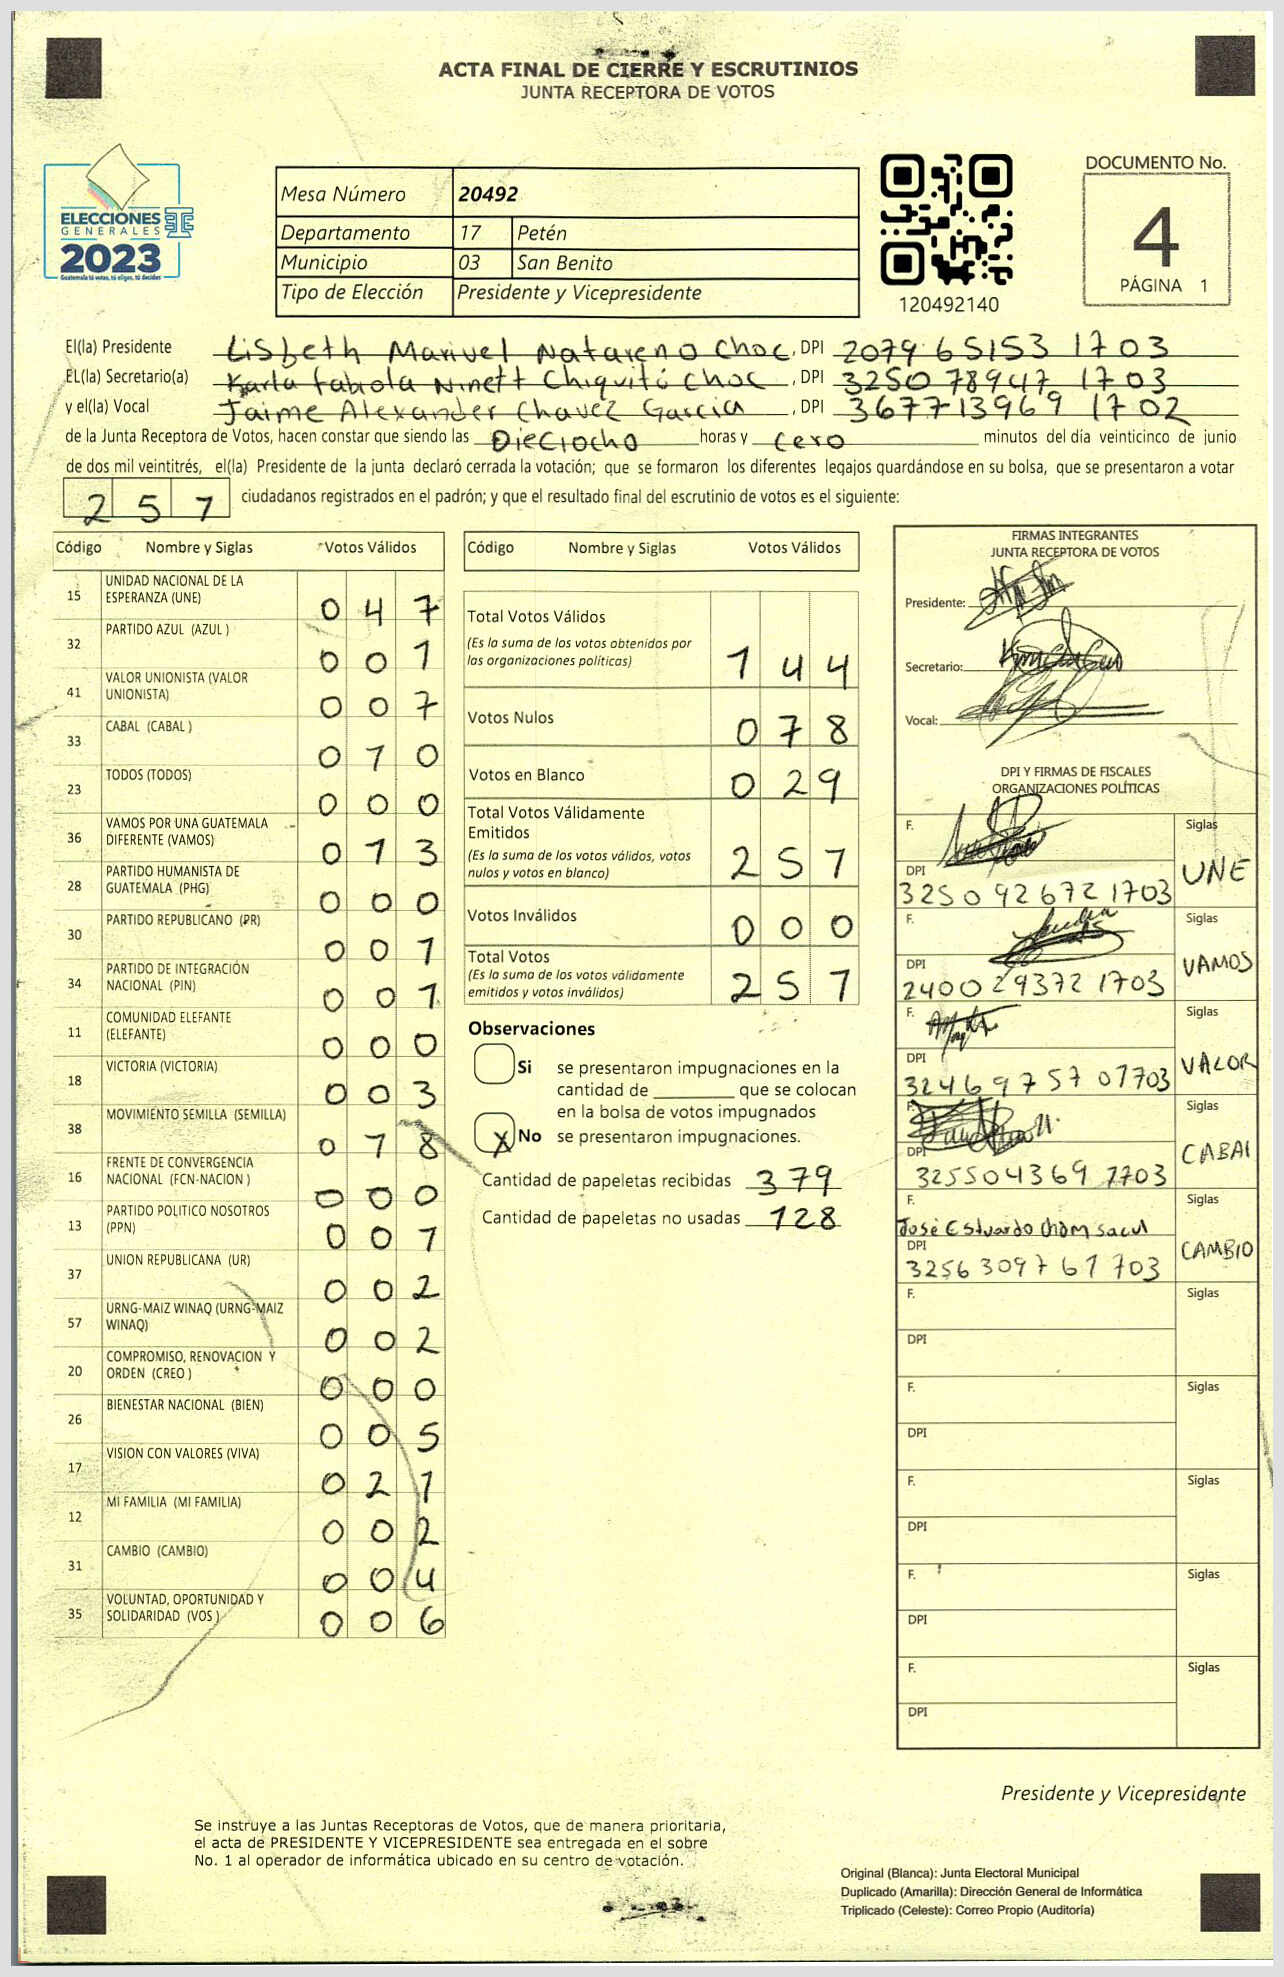 ACTA FINAL DE CIERRE Y ESCRUTINIOS
JUNTA RECEPTORA DE VOTOS
ELECCIONES
GENERALES
2023
Guatemala tú votas, tú eliges, tú decides
Mesa Número 20492
Departamento 17 Petén
Municipio 03 San Benito
Tipo de Elección Presidente y Vicepresidente
120492140
DOCUMENTO No.
4
PÁGINA 1
El(la) Presidente Lisbeth Marivel Natareno Choc, DPI 2079 65153 1703
EL(la) Secretario(a) Karla fabiola Ninett Chiquitó Choc, DPI 3250 78947 1703
y el(la) Vocal Jaime Alexander Chavez Garcia, DPI 3677 13969 1702
de la Junta Receptora de Votos, hacen constar que siendo las Dieciocho horas y cero minutos del día veinticinco de junio
de dos mil veintitrés, el(la) Presidente de la junta declaró cerrada la votación; que se formaron los diferentes legajos quardándose en su bolsa, que se presentaron a votar
251 ciudadanos registrados en el padrón; y que el resultado final del escrutinio de votos es el siguiente:
Código Nombre y Siglas Votos Válidos
15 UNIDAD NACIONAL DE LA ESPERANZA (UNE) 047
32 PARTIDO AZUL (AZUL ) 001
41 VALOR UNIONISTA (VALOR UNIONISTA) 007
33 CABAL (CABAL ) 010
23 TODOS (TODOS) 000
36 VAMOS POR UNA GUATEMALA DIFERENTE (VAMOS) 013
28 PARTIDO HUMANISTA DE GUATEMALA (PHG) 000
30 PARTIDO REPUBLICANO (PR) 001
34 PARTIDO DE INTEGRACIÓN NACIONAL (PIN) 001
11 COMUNIDAD ELEFANTE (ELEFANTE) 000
18 VICTORIA (VICTORIA) 003
38 MOVIMIENTO SEMILLA (SEMILLA) 018
16 FRENTE DE CONVERGENCIA NACIONAL (FCN-NACION ) 000
13 PARTIDO POLITICO NOSOTROS (PPN) 001
37 UNION REPUBLICANA (UR) 002
57 URNG-MAIZ WINAQ (URNG-MAIZ WINAQ) 002
20 COMPROMISO, RENOVACION Y ORDEN (CREO ) 000
26 BIENESTAR NACIONAL (BIEN) 005
17 VISION CON VALORES (VIVA) 021
12 MI FAMILIA (MI FAMILIA) 002
31 CAMBIO (CAMBIO) 004
35 VOLUNTAD, OPORTUNIDAD Y SOLIDARIDAD (VOS ) 006
Código Nombre y Siglas Votos Válidos
Total Votos Válidos
(Es la suma de los votos obtenidos por
las organizaciones políticas) 144
Votos Nulos 078
Votos en Blanco 029
Total Votos Válidamente
Emitidos
(Es la suma de los votos válidos, votos
nulos y votos en blanco) 251
Votos Inválidos 000
Total Votos
(Es la suma de los votos válidamente
emitidos y votos inválidos) 251
Observaciones
Si se presentaron impugnaciones en la
cantidad de ________ que se colocan
en la bolsa de votos impugnados
X No se presentaron impugnaciones.
Cantidad de papeletas recibidas 379
Cantidad de papeletas no usadas 128
FIRMAS INTEGRANTES
JUNTA RECEPTORA DE VOTOS
Presidente:
Secretario:
Vocal:
DPI Y FIRMAS DE FISCALES
ORGANIZACIONES POLÍTICAS
F. Siglas
DPI 3250 92672 1703 UNE
F. Siglas
DPI 2400 29372 1703 VAMOS
F. Siglas
DPI 3246 97570 1703 VALOR
F. Siglas
DPI 3255 04369 1703 CABAl
F. José Estuardo Chom sacul Siglas
DPI 3256 30976 1703 CAMBIO
F. Siglas
DPI
F. Siglas
DPI
F. Siglas
DPI
F. Siglas
DPI
F. Siglas
DPI
Presidente y Vicepresidente
Se instruye a las Juntas Receptoras de Votos, que de manera prioritaria,
el acta de PRESIDENTE Y VICEPRESIDENTE sea entregada en el sobre
No. 1 al operador de informática ubicado en su centro de votación.
Original (Blanca): Junta Electoral Municipal
Duplicado (Amarilla): Dirección General de Informática
Triplicado (Celeste): Correo Propio (Auditoría)